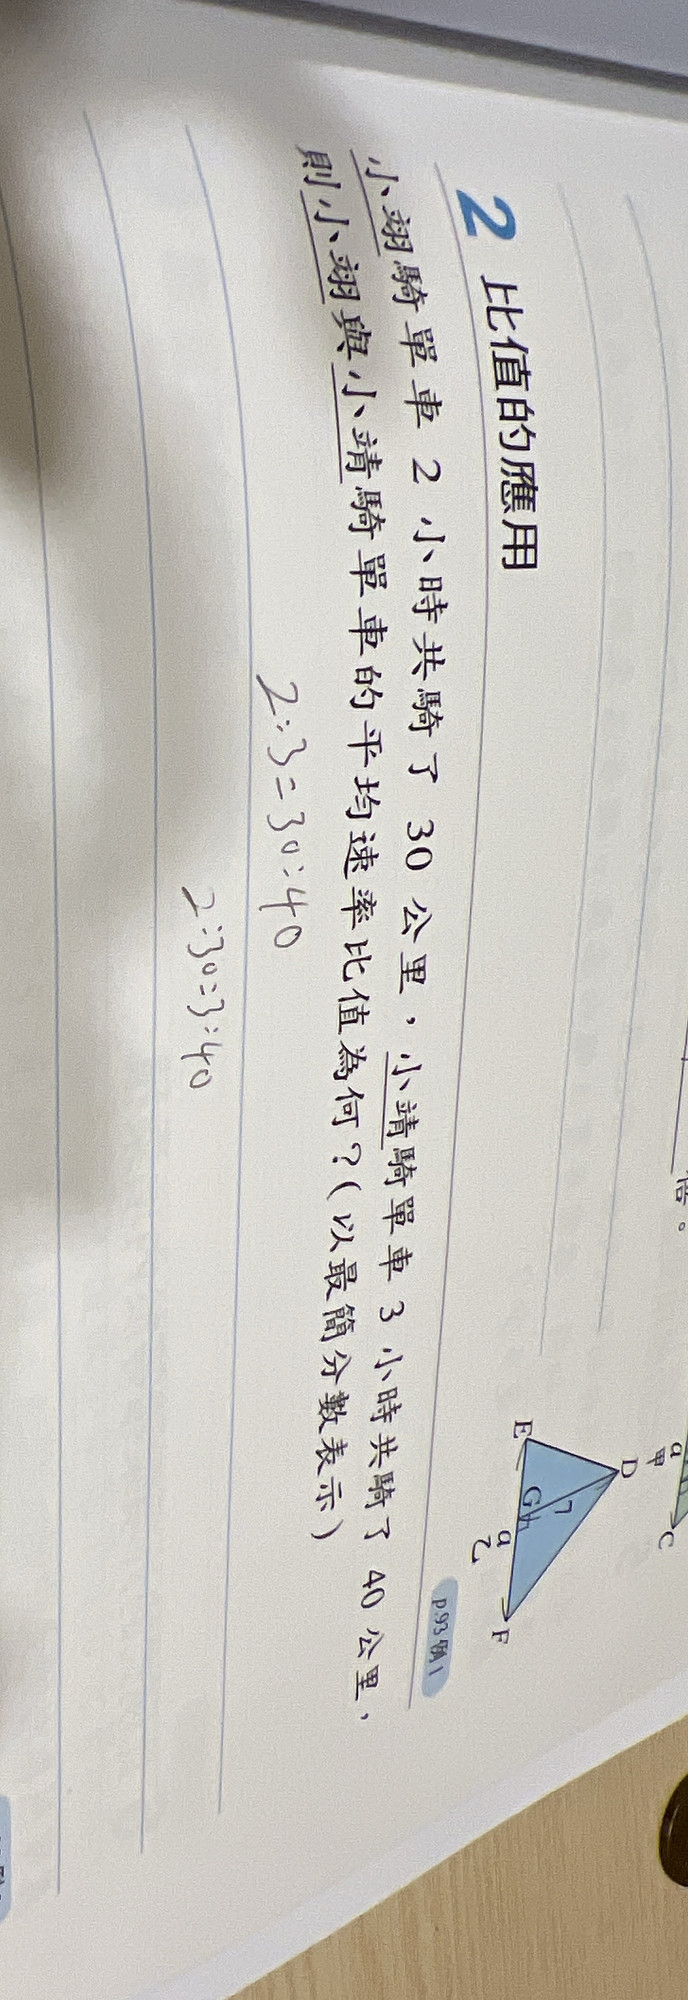 倍。
甲
a
C
D
E
G
7
a
F
乙
2 比值的應用
p.93 例1
小翊騎單車 2 小時共騎了 30 公里，小靖騎單車 3 小時共騎了 40 公里，
則小翊與小靖騎單車的平均速率比值為何？(以最簡分數表示)
2:3=30:40
2:30=3:40